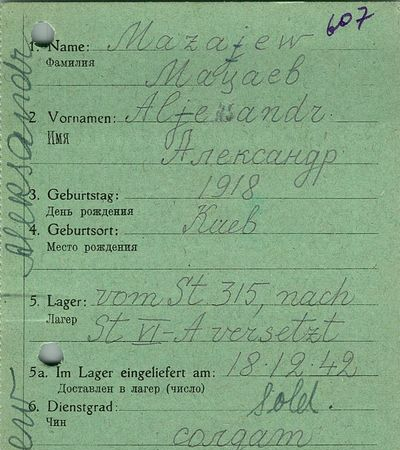 607
1. Name: Mazajew
Фамилия
Мацаев
2 Vornamen: Aljeksandr
ИМЯ
Александр
3. Geburtstag: 1918
День рождения
4. Geburtsort: Киев
Место рождения
5. Lager: vom St. 315, nach
Лагер
St VI-A versetzt
5a. Im Lager eingeliefert am: 18.12.42
Доставлен в лагер (число)
6. Dienstgrad: Sold.
Чин
солдат
Aleksandr
ew